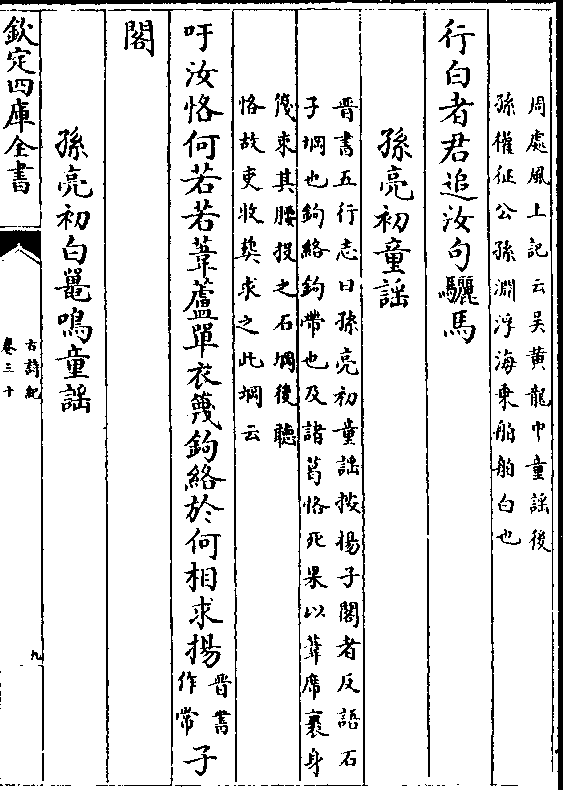 周處風土記云吳黄龍中童謡後
孫權征公孫淵浮海乗舶舶白也
行白者君追汝句驪馬
孫亮初童謡
晉書五行志曰孫亮初童謡按揚子閣者反語石
子堈也鉤絡鉤帶也及諸葛恪死果以葦席裹身
篾束其腰投之石堈後聽
恪故吏收葬求之此堈云
吁汝恪何若若葦蘆單衣篾鉤絡於何相求揚晉書作常子
閣
孫亮初白鼍鳴童謡
欽定四庫全書
古詩紀
卷三十
九